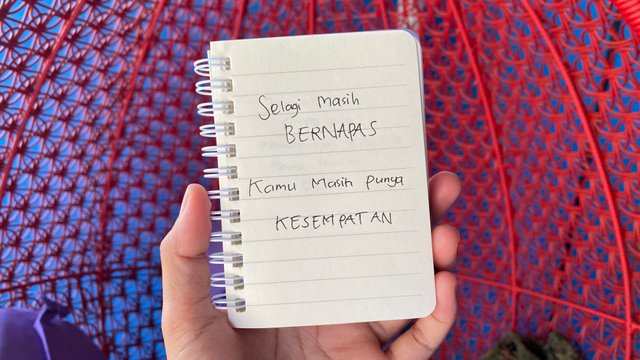 Selagi Masih
BERNAPAS
Kamu Masih Punya
KESEMPATAN